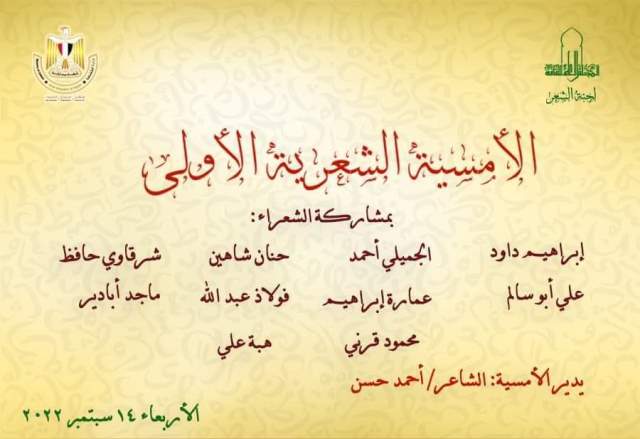 لجنة الشعر
الأمسية الشعرية الأولى
بمشاركة الشعراء:
إبراهيم داود الجميلي أحمد حنان شاهين شرقاوي حافظ
علي أبو سالم عمارة إبراهيم فولاذ عبد الله ماجد أبادير
محمود قرني هبة علي
يدير الأمسية: الشاعر/ أحمد حسن
الأربعاء ١٤ سبتمبر ٢٠٢٢